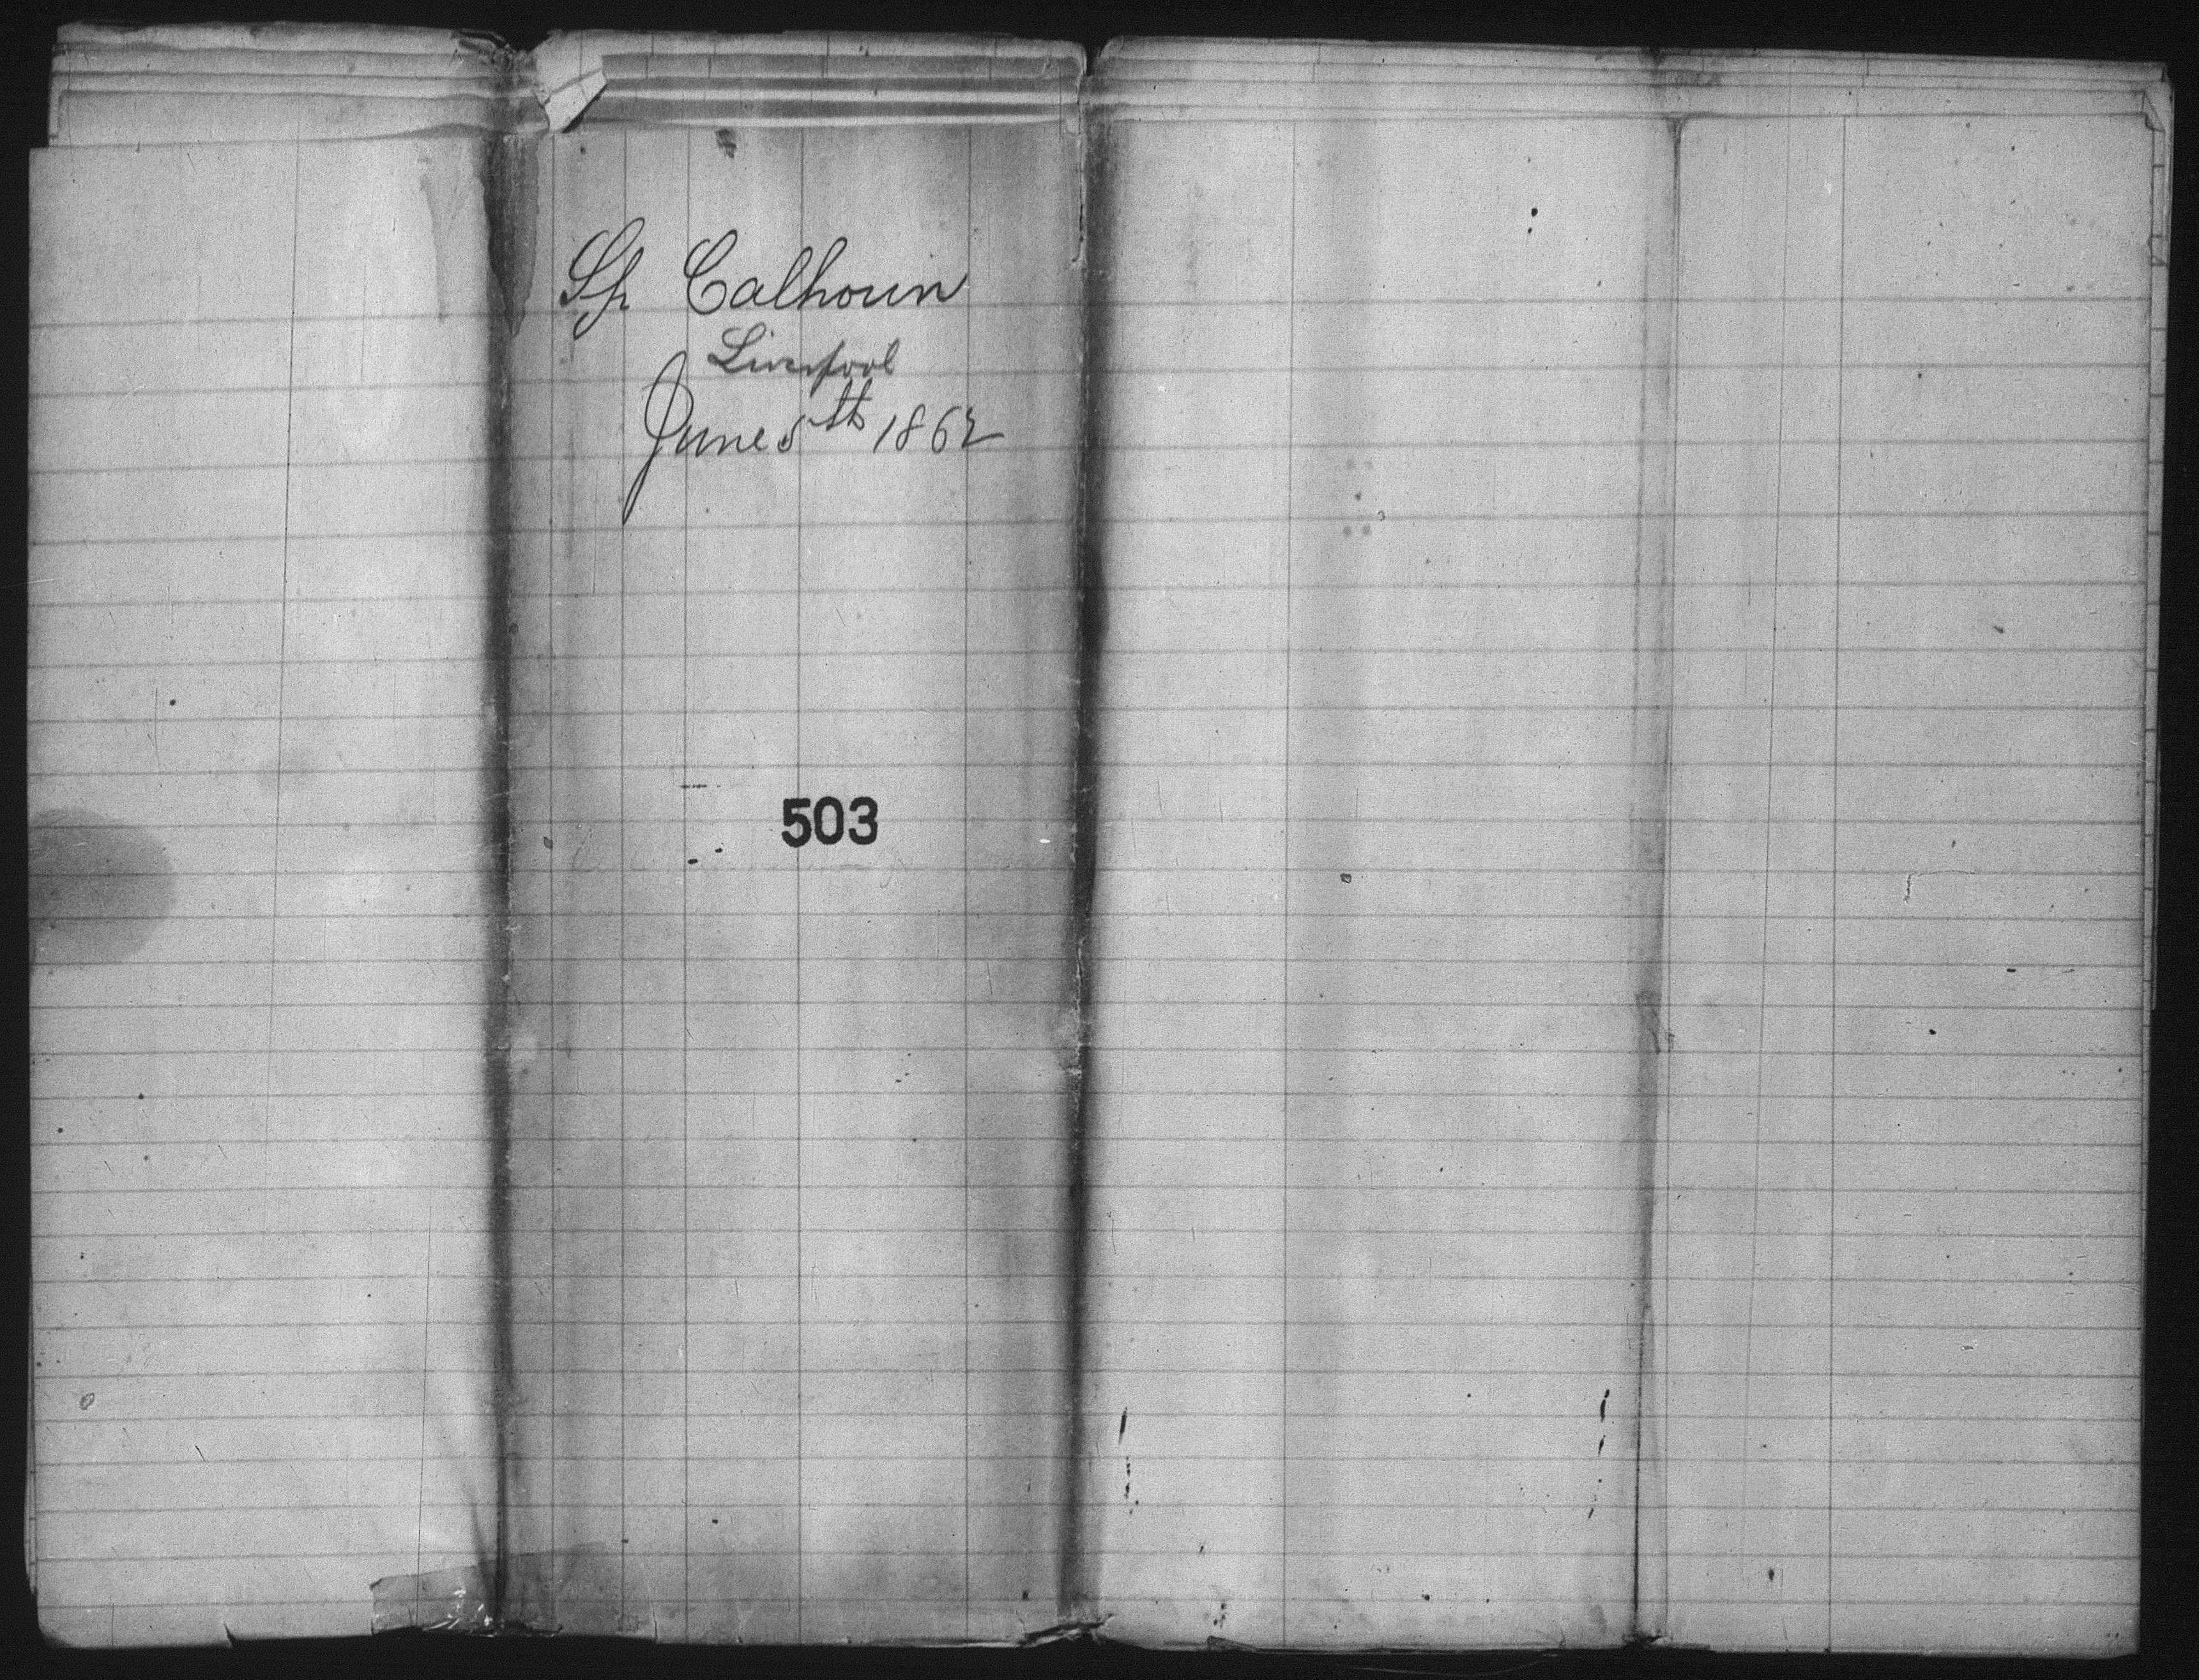 Sh Calhoun
Liverpool
June 5th 1862
503